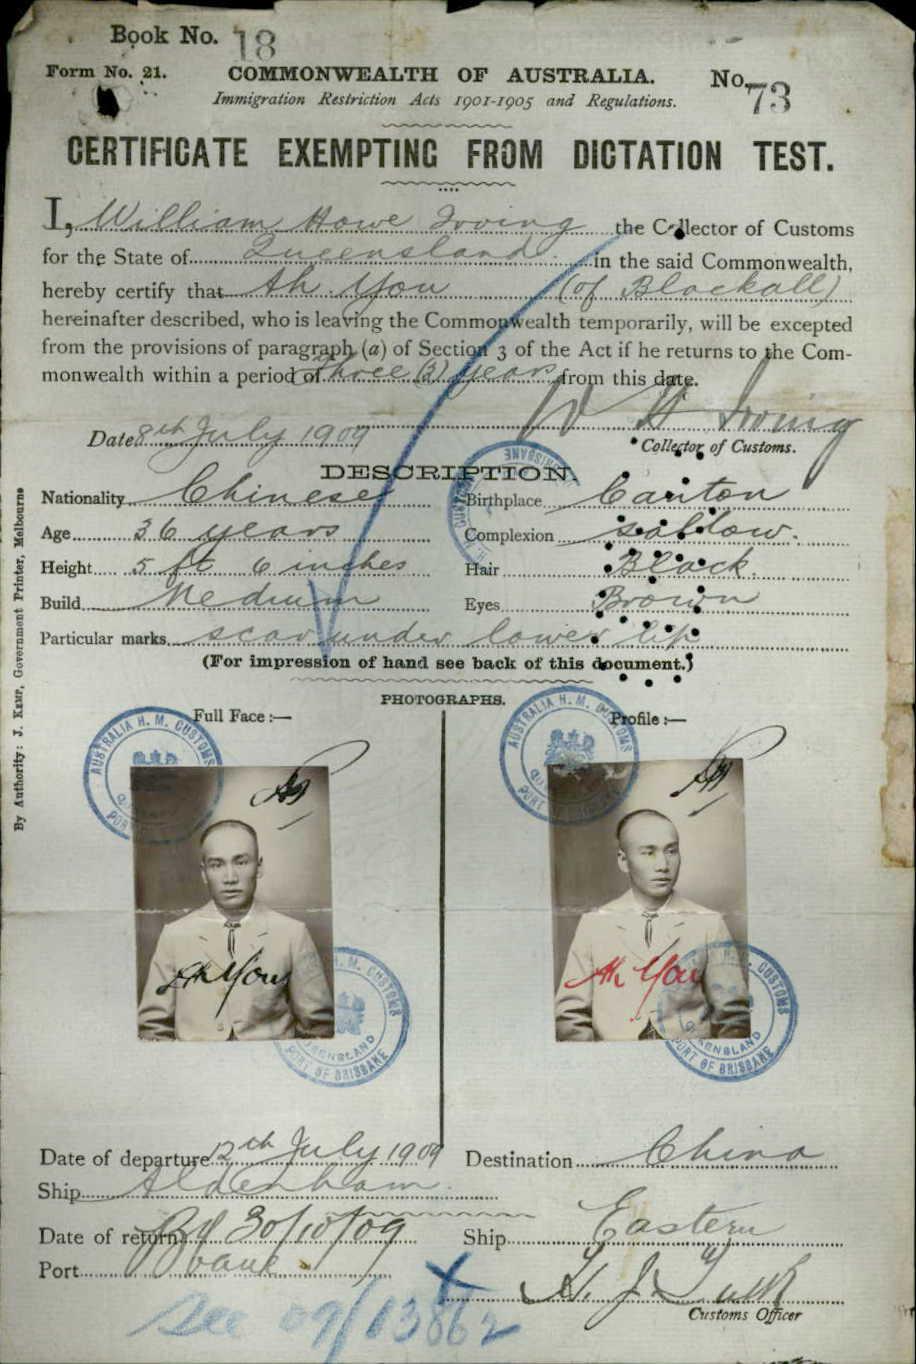 Book No. 18
Form No. 21. COMMONWEALTH OF AUSTRALIA. No. 73
Immigration Restriction Acts 1901-1905 and Regulations.
CERTIFICATE EXEMPTING FROM DICTATION TEST.
I, William Howe Irving the Collector of Customs
for the State of Queensland in the said Commonwealth,
hereby certify that Ah You (of Blackall)
hereinafter described, who is leaving the Commonwealth temporarily, will be excepted
from the provisions of paragraph (a) of Section 3 of the Act if he returns to the Com-
monwealth within a period of Three (3) years from this date.
W H Irving
Date 8th July 1909 Collector of Customs.
DESCRIPTION.
Nationality Chinese Birthplace Canton
Age 36 years Complexion sallow.
Height 5 ft 6 inches Hair Black
Build Medium Eyes Brown
Particular marks scar under lower lip
(For impression of hand see back of this document.)
PHOTOGRAPHS.
Full Face :— Profile :—
AUSTRALIA H. M. CUSTOMS
AUSTRALIA H. M. CUSTOMS
Ah You Ah You
H. M. CUSTOMS QUEENSLAND PORT OF BRISBANE
CUSTOMS QUEENSLAND PORT OF BRISBANE
Date of departure 12th July 1909 Destination China
Ship Aldenham
Date of return 30/10/09 Ship Eastern
Port Bbane
Customs Officer
See 09/13862
By Authority: J. Kemp, Government Printer, Melbourne